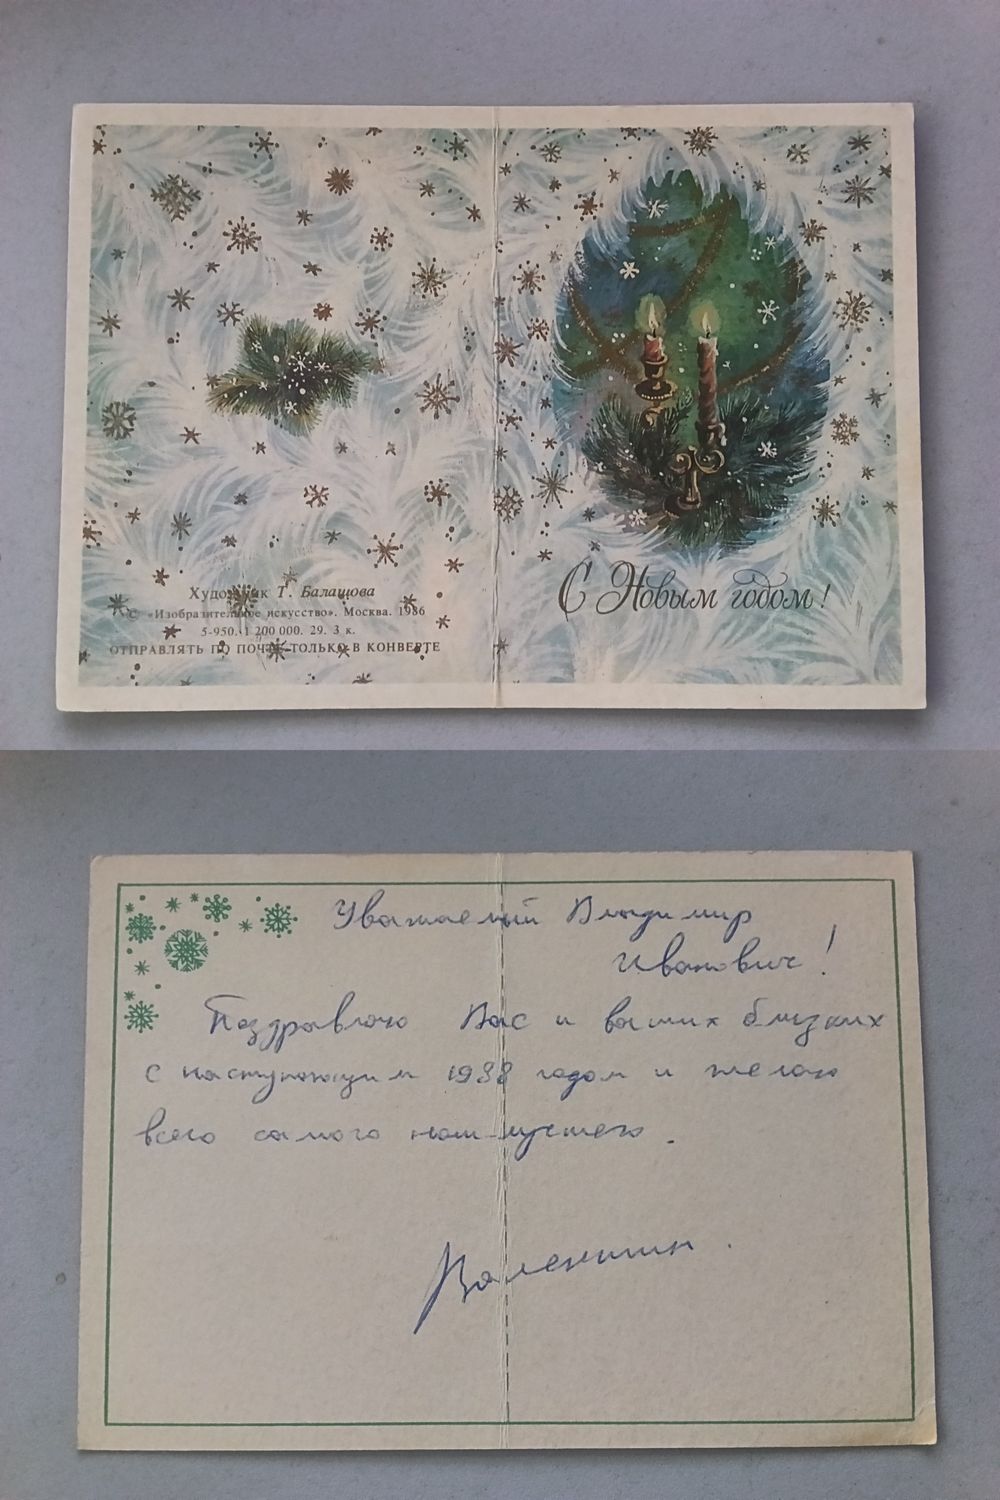 Художник Т. Балашова
© «Изобразительное искусство». Москва. 1986
5-950. 1 200 000. 29. 3 к.
ОТПРАВЛЯТЬ ПО ПОЧТЕ ТОЛЬКО В КОНВЕРТЕ
С Новым годом!
Уважаемый Владимир
Иванович!
Поздравляю Вас и ваших близких
с наступающим 1988 годом и желаю
всего самого наилучшего.
Валентин.